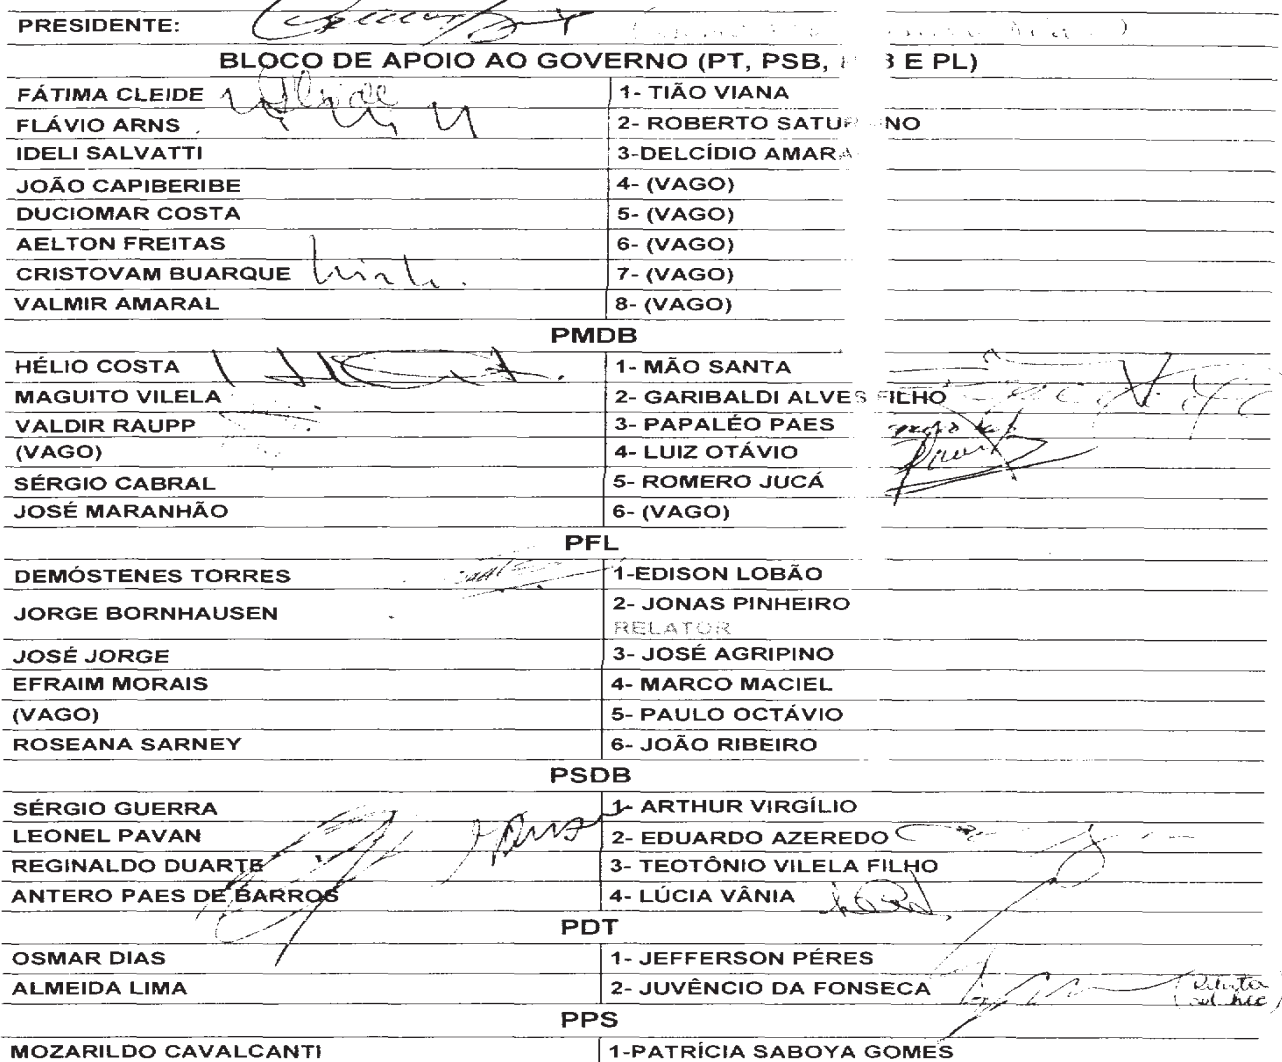 PRESIDENTE:
BLOCO DE APOIO AO GOVERNO (PT, PSB, B E PL)
FÁTIMA CLEIDE 1- TIÃO VIANA
FLÁVIO ARNS 2- ROBERTO SATUR NO
IDELI SALVATTI 3-DELCÍDIO AMARA
JOÃO CAPIBERIBE 4- (VAGO)
DUCIOMAR COSTA 5- (VAGO)
AELTON FREITAS 6- (VAGO)
CRISTOVAM BUARQUE 7- (VAGO)
VALMIR AMARAL 8- (VAGO)
PMDB
HÉLIO COSTA 1- MÃO SANTA
MAGUITO VILELA 2- GARIBALDI ALVES FILHO
VALDIR RAUPP 3- PAPALÉO PAES
(VAGO) 4- LUIZ OTÁVIO
SÉRGIO CABRAL 5- ROMERO JUCÁ
JOSÉ MARANHÃO 6- (VAGO)
PFL
DEMÓSTENES TORRES 1-EDISON LOBÃO
JORGE BORNHAUSEN 2- JONAS PINHEIRO
RELATOR
JOSÉ JORGE 3- JOSÉ AGRIPINO
EFRAIM MORAIS 4- MARCO MACIEL
(VAGO) 5- PAULO OCTÁVIO
ROSEANA SARNEY 6- JOÃO RIBEIRO
PSDB
SÉRGIO GUERRA 1- ARTHUR VIRGÍLIO
LEONEL PAVAN 2- EDUARDO AZEREDO
REGINALDO DUARTE 3- TEOTÔNIO VILELA FILHO
ANTERO PAES DE BARROS 4- LÚCIA VÂNIA
PDT
OSMAR DIAS 1- JEFFERSON PÉRES
ALMEIDA LIMA 2- JUVÊNCIO DA FONSECA
PPS
MOZARILDO CAVALCANTI 1-PATRÍCIA SABOYA GOMES